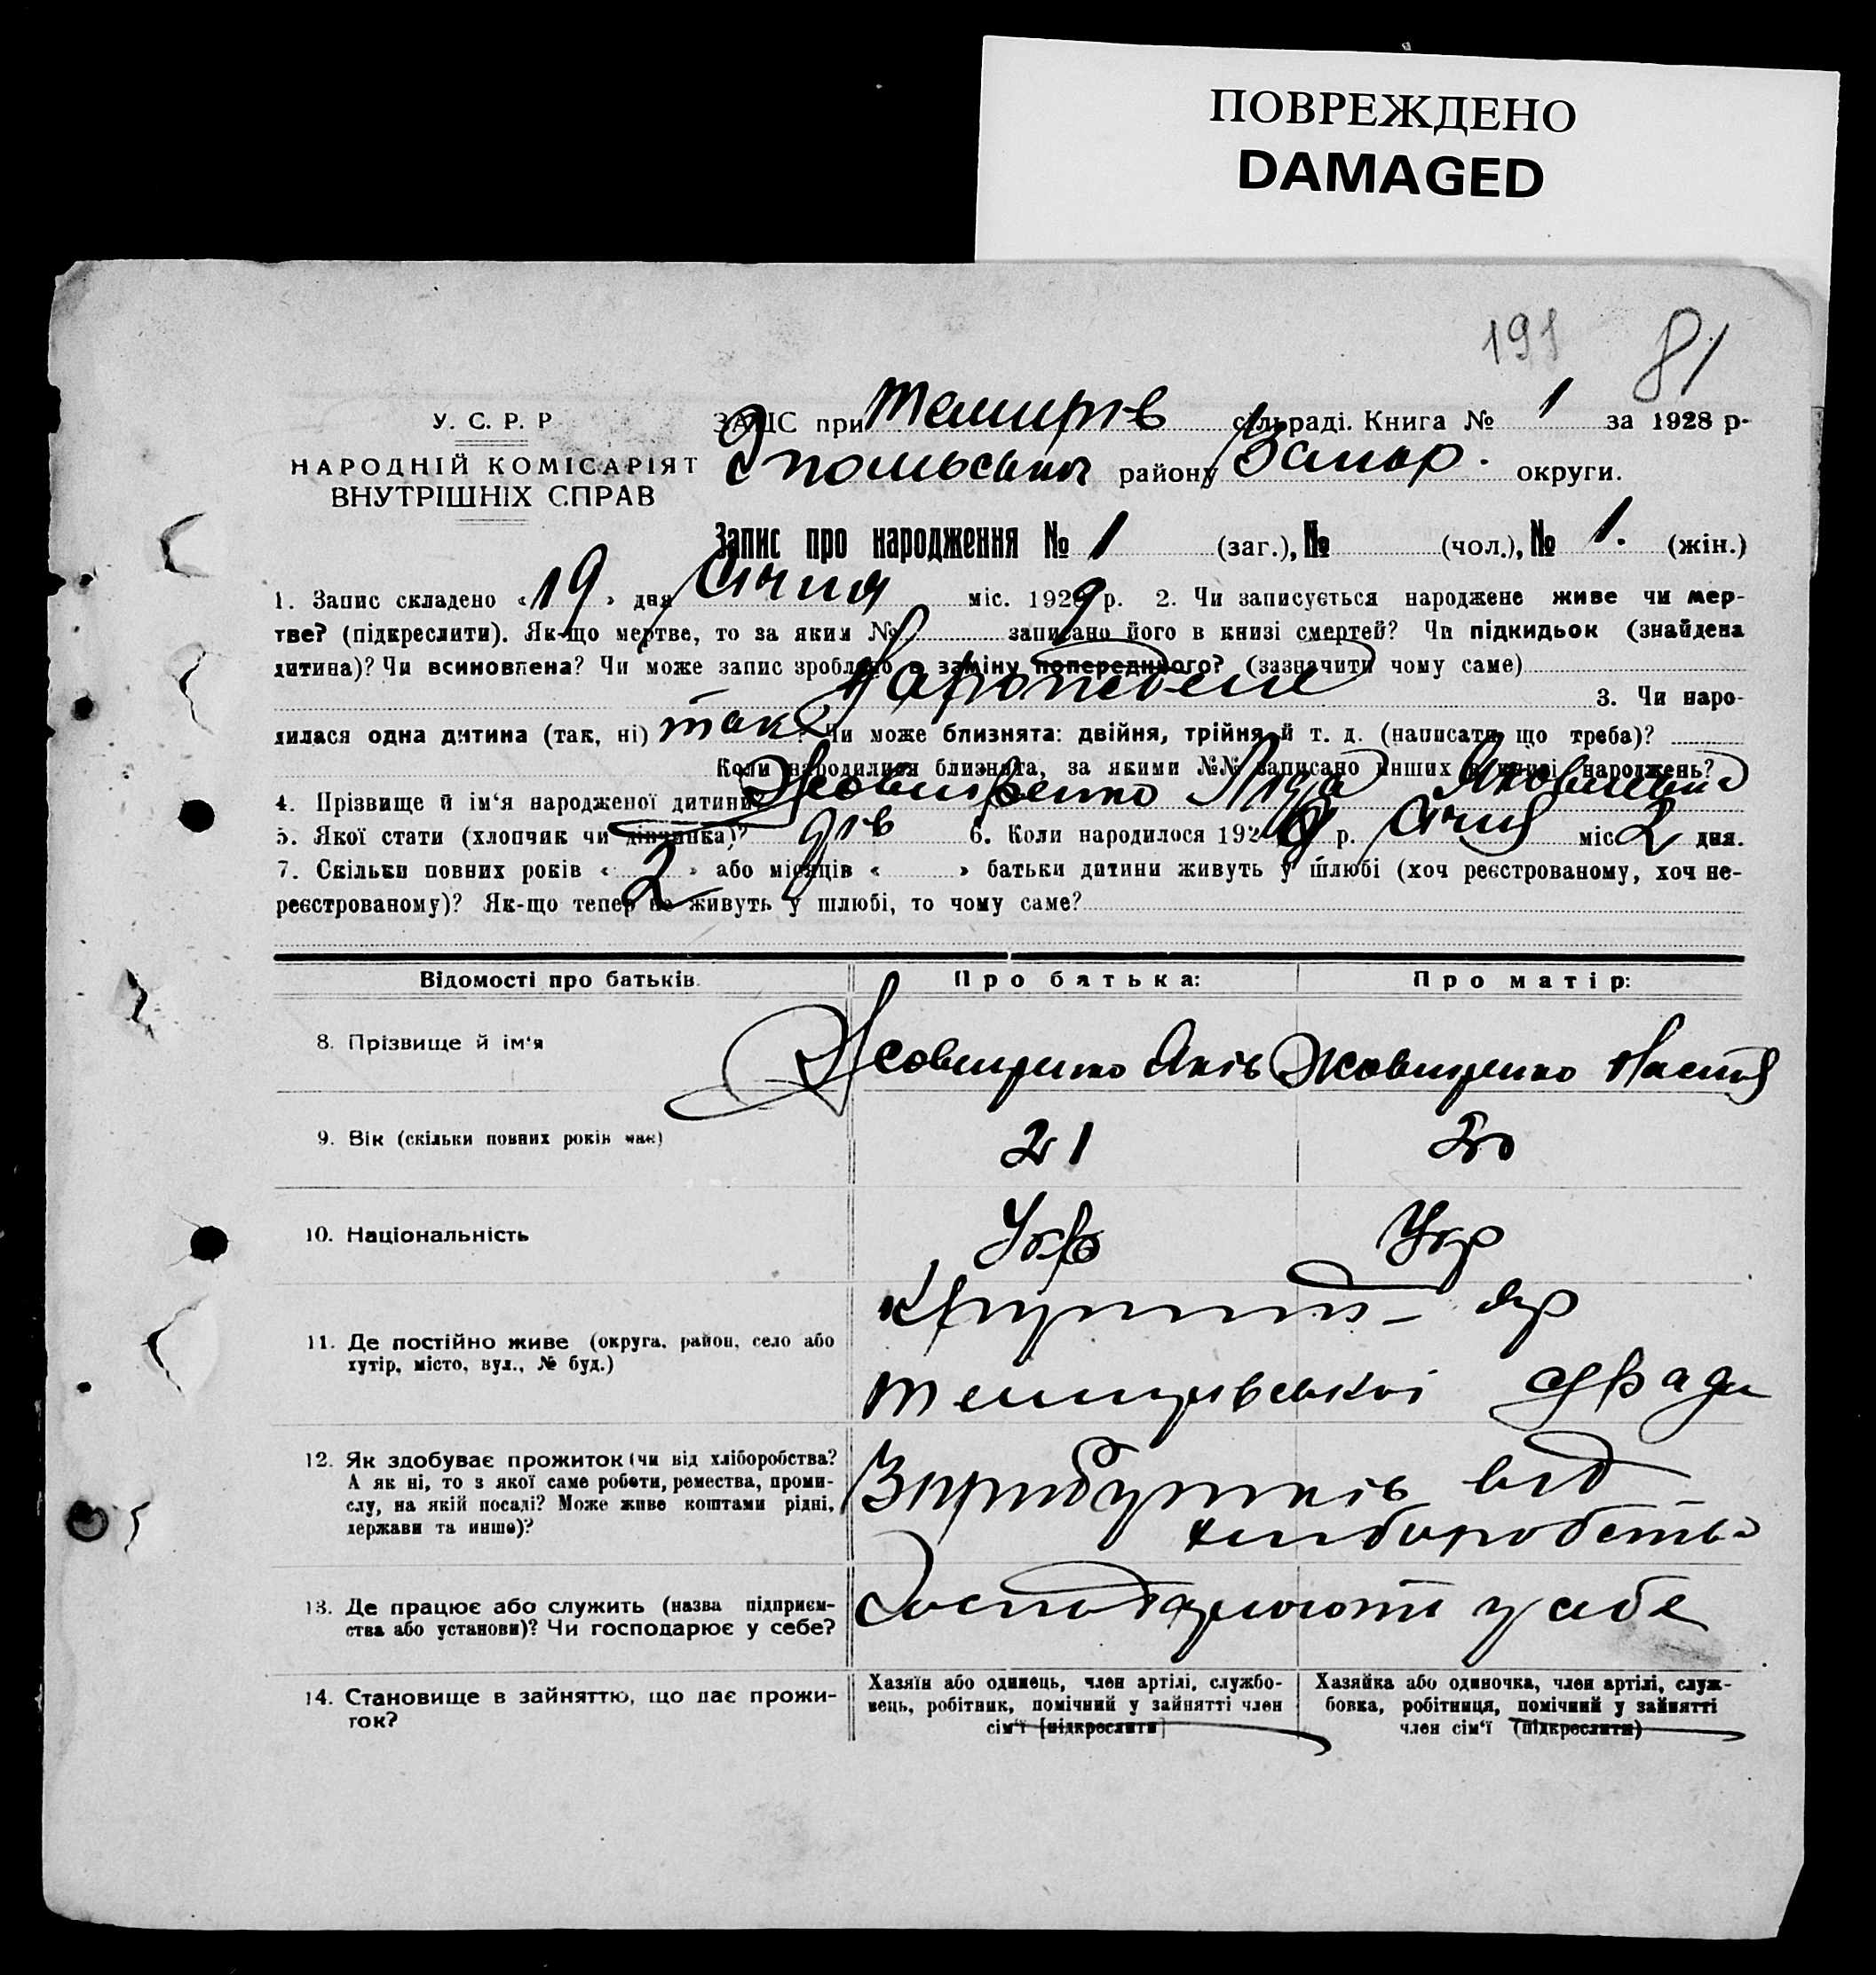 ПОВРЕЖДЕНО
DAMAGED
191 81
У. С. Р. Р
НАРОДНІЙ КОМІСАРІЯТ
ВНУТРІШНІХ СПРАВ
ЗАПИС при Темирів сільраді. Книга № 1 за 1928 р.
польськог району Запор. округи.
Запис про народження № 1 (заг.), № (чол.), № 1. (жін.)
1. Запис складено «19» дня Січня міс. 1929 р. 2. Чи записується народжене живе чи мер-
тве? (підкреслити). Як-що мертве, то за яким № записано його в книзі смертей? Чи підкидьок (знайдена
дитина)? Чи всиновлена? Чи може запис зроблено в заміну попереднього? (зазначити чому саме)
3. Чи наро-
дилася одна дитина (так, ні) так? Чи може близнята: двійня, трійня й т. д. (написати що треба)?
Коли народилися близнята, за якими №№ записано инших в книзі народжень?
4. Прізвище й ім‘я народженої дитини?
5. Якої стати (хлопчик чи дівчинка)? дів 6. Коли народилося 1929 р. Січня міс 2 дня.
7. Скільки повних років «2» або місяців « » батьки дитини живуть у шлюбі (хоч реєстрованому, хоч не-
реєстрованому)? Як-що тепер не живуть у шлюбі, то чому саме?
Відомості про батьків. Про батька: Про матір:
8. Прізвище й ім‘я Жовниренко Яків Жовниренко Настя
9. Вік (скільки повних років має) 21 20
10. Національність Укр Укр
11. Де постійно живе (округа, район, село або
хутір, місто, вул., № буд.)
Яр
Темирівської с/ради
12. Як здобуває прожиток (чи від хліборобства?
А як ні, то з якої саме роботи, ремества, проми-
слу, на якій посаді? Може живе коштами рідні,
держави та инше)?
З прибутків від
хліборобства
13. Де працює або служить (назва підприєм-
ства або установи)? Чи господарює у себе?
Господарюють у себе
14. Становище в зайняттю, що дає прожи-
ток?
Хазяїн або одинець, член артілі, службо-
вець, робітник, помічний у зайнятті член
сім‘ї [підкреслити]
Хазяйка або одиночка, член артілі, служ-
бовка, робітниця, помічний у зайнятті
член сім‘ї (підкреслити)